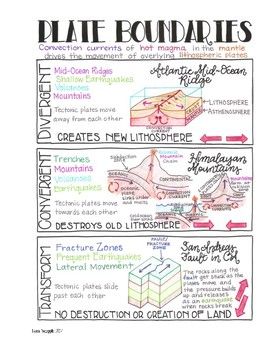 PLATE BOUNDARIES
Convection currents of hot magma in the mantle
drives the movement of overlying lithospheric plates
DIVERGENT
Mid-Ocean Ridges
Shallow Earthquakes
Volcanoes
Mountains
Tectonic plates move
away from each other
Atlantic Mid-Ocean
Ridge
LITHOSPHERE
ASTHENOSPHERE
CREATES NEW LITHOSPHERE
CONVERGENT
Trenches
Mountains
Volcanoes
Earthquakes
Tectonic plates move
towards each other
Himalayan
Mountains
DESTROYS OLD LITHOSPHERE
TRANSFORM
Fracture Zones
Frequent Earthquakes
Lateral Movement
Tectonic plates slide
past each other
San Andreas
Fault in CA
The rocks along the
fault get stuck as the
plates move and
the pressure builds
up and releases
as an earthquake
when rocks break
NO DESTRUCTION OR CREATION OF LAND